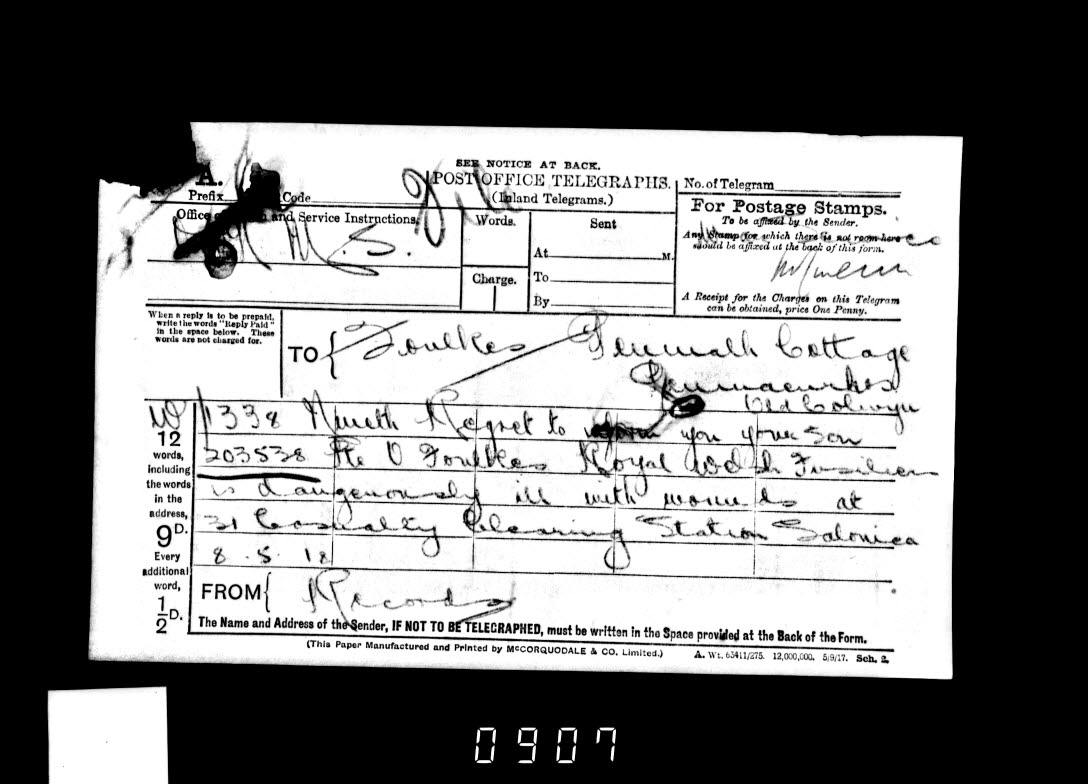 SEE NOTICE AT BACK.
A.
POST OFFICE TELEGRAPHS.
No. of Telegram
Prefix Code
(Inland Telegrams.)
For Postage Stamps.
To be affixed by the Sender.
Any Stamp for which there is not room here
should be affixed at the back of this form.
A Receipt for the Charges on this Telegram
can be obtained, price One Penny.
Office and Service Instructions.
Words.
Sent
O.H.M.S.
At M.
Charge.
To
By
When a reply is to be prepaid,
write the words "Reply Paid"
in the space below. These
words are not charged for.
TO { Foulkes Cottage
Old Colwyn
12
words,
including
the words
in the
address,
9D.
Every
additional
word,
1/2D.
W/1338 Regret to inform you your son
203538 Pte O Foulkes Royal Welsh Fusiliers
is dangerously ill with wounds at
31 Casualty Clearing Station Salonica
8.5.18
FROM { Records
The Name and Address of the Sender, IF NOT TO BE TELEGRAPHED, must be written in the Space provided at the Back of the Form.
(This Paper Manufactured and Printed by McCORQUODALE & CO. Limited.)
A. Wt. 63411/275. 12,000,000. 5/9/17. Sch. 2.
0907